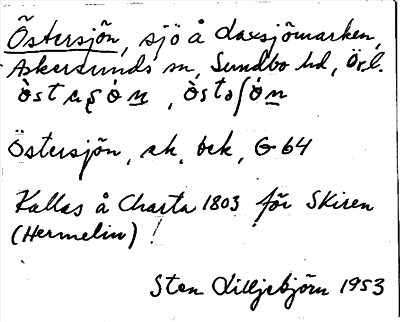 Östersjön, sjö å Laxsjömarken,
Askersunds sn, Sundbo hd, Örl.
Östersjön, ek, bek, G 64
Kallas å Charta 1803 för Skiren
(Hermelin)!
Sten Lilljebjörn 1953